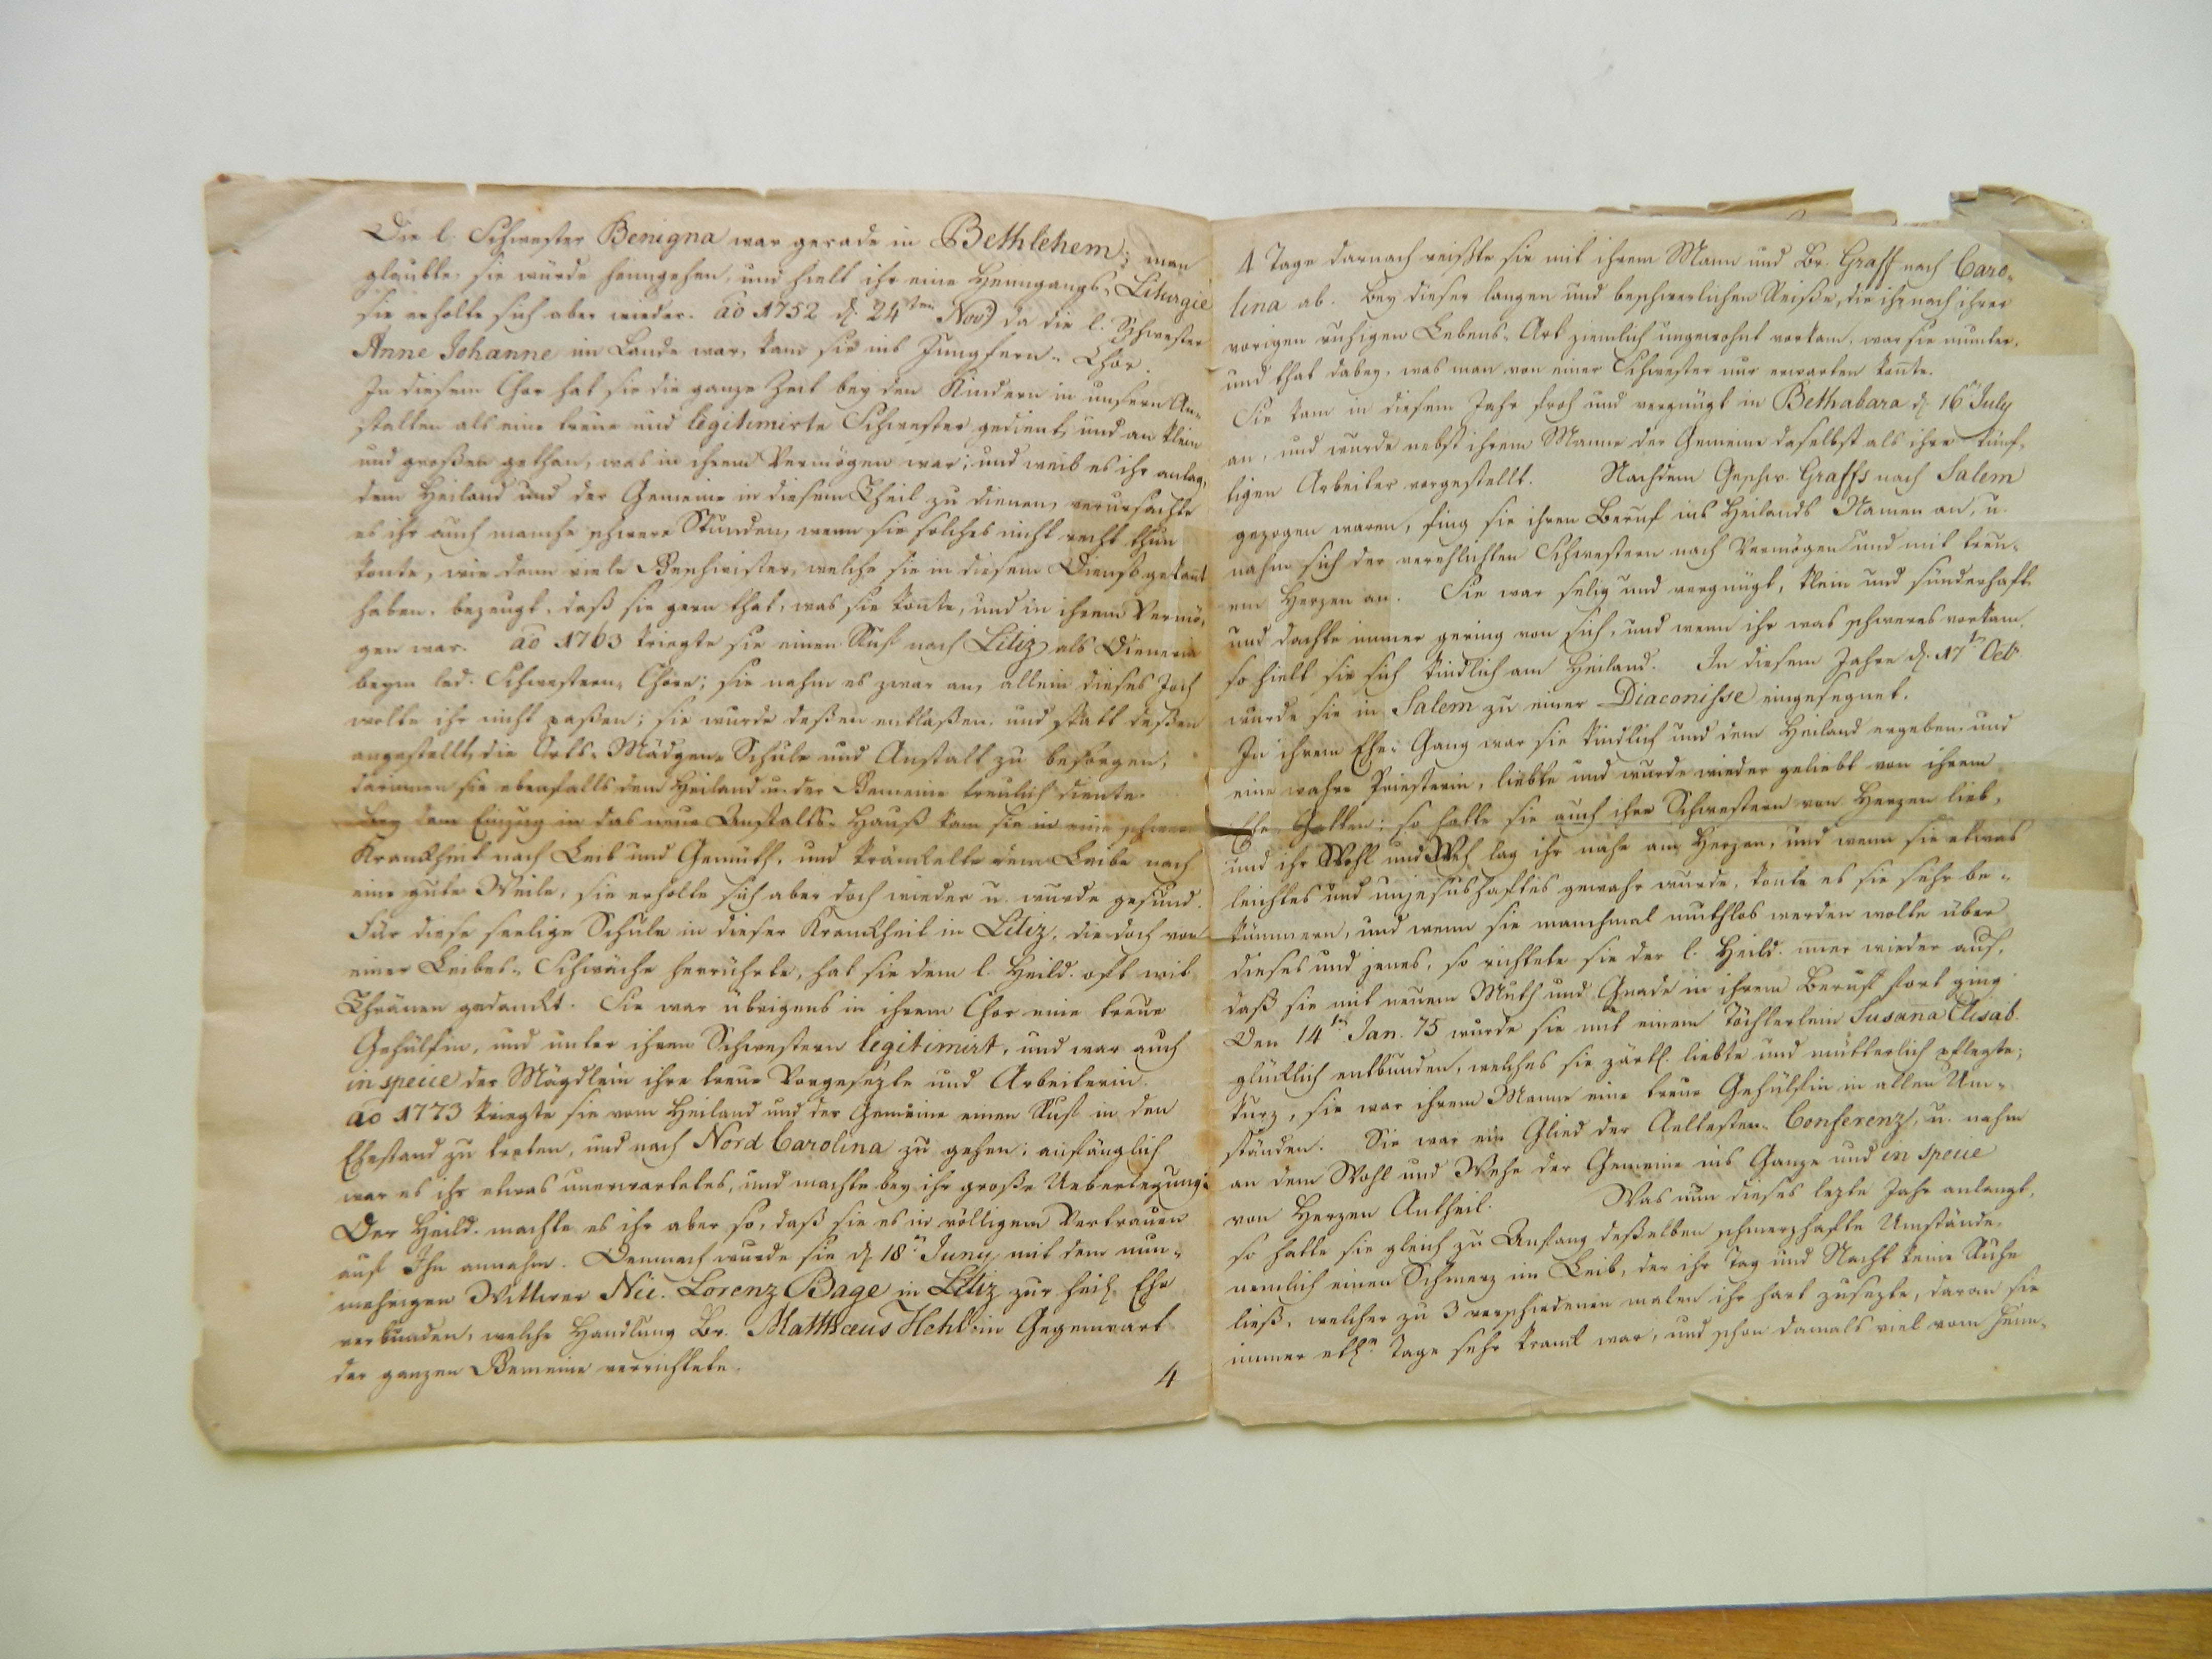 Die l. Schwester Benigna war gerade in Bethlehem; man
glaubte, sie würde heimgehen, und hielt ihr eine Heimgangs-Liturgie
sie erholte sich aber wieder. ao 1752 d. 24ten Novr da die l. Schwester
Anne Johanne im Lande war, kam sie ins Jungfern-Chor.
In diesem Chor hat sie die ganze Zeit bey den Kindern in unsern An-
stalten als eine treue und legitimirte Schwester gedient, und an klein
und großen gethan, was in ihrem Vermögen war; und weil es ihr anlag,
dem Heiland und der Gemeine in diesem Theil zu dienen, verursachte
es ihr auch manche schwere Stunden, wenn sie solches nicht recht thun
konte, wie denn viele Geschwister, welche sie in diesem Dienst gekant
haben, bezeugt, daß sie gern that, was sie konte, und in ihrem Vermö-
gen war. ao 1763 kriegte sie einen Ruf nach Litiz als Dienerin
beym led. Schwestern-Chore; sie nahm es zwar an, allein dieses Joch
wolte ihr nicht paßen; sie wurde deßen entlaßen, und statt deßen
angestellt, die Orts-Mädgen-Schule und Anstalt zu besorgen;
darinnen sie ebenfalls dem Heiland u. der Gemeine treulich diente.
Bey dem Einzug in das neue Anstalts-Hauß kam sie in eine schwere
Krankheit nach Leib und Gemüth, und kränkelte dem Leibe nach
eine gute Weile, sie erholte sich aber doch wieder u. wurde gesund.
Für diese seelige Schule in dieser Krankheit in Litiz, die doch von
einer Leibes-Schwäche herrührte, hat sie dem l. Heild. oft mit
Thränen gedankt. Sie war übrigens in ihrem Chor eine treue
Gehülfin, und unter ihren Schwestern legitimirt, und war auch
in specie der Mägdlein ihre treue Vorgesezte und Arbeiterin.
ao 1773 kriegte sie vom Heiland und der Gemeine einen Ruf in den
Ehestand zu treten, und nach Nord Carolina zu gehen; anfänglich
war es ihr etwas unerwartetes, und machte bey ihr große Ueberlegung.
Der Heild. machte es ihr aber so, daß sie es in völligem Vertrauen
auf Ihn annahm. Demnach wurde sie d. 18n Juny mit dem nun-
mehrigen Wittwer Nic. Lorenz Bage in Litiz zur heil. Ehe
verbunden, welche Handlung Br. Matthaeus Hehl in Gegenwart
der ganzen Gemeine verrichtete.
4
4 Tage darnach reißte sie mit ihrem Mann und Br. Graff nach Caro-
lina ab. Bey dieser langen und beschwerlichen Reiße, die ihr nach ihrer
vorigen ruhigen Lebens-Art ziemlich ungewohnt vorkam, war sie munter,
und that dabey, was man von einer Schwester nur erwarten konte.
Sie kam in diesem Jahr froh und vergnügt in Bethabara d. 16n July
an, und wurde nebst ihrem Manne der Gemeine daselbst als ihre künf-
tigen Arbeiter vorgestellt. Nachdem Geschw. Graffs nach Salem
gezogen waren, fing sie ihren Beruf ins Heilands Namen an, u.
nahm sich der verehlichten Schwestern nach Vermögen und mit treu-
em Herzen an. Sie war selig und vergnügt, klein und sünderhaft
und dachte immer gering von sich, und wenn ihr was schweres vorkam,
so hielt sie sich kindlich am Heiland. In diesem Jahre d. 17n Octr
wurde sie in Salem zu einer Diaconisse eingesegnet.
In ihrem Ehe-Gang war sie kindlich und dem Heiland ergeben, und
eine wahre Priesterin, liebte und wurde wieder geliebt von ihrem
Ehe-Gatten; so hatte sie auch ihre Schwestern von Herzen lieb,
und ihr Wohl und Weh lag ihr nahe am Herzen, und wenn sie etwas
leichtes und unjesushaftes gewahr wurde, konte es sie sehr be-
kümmern, und wenn sie manchmal muthlos werden wolte über
dieses und jenes, so richtete sie der l. Heild. imer wieder auf,
daß sie mit neuem Muth und Gnade in ihrem Beruf fort ging
Den 14tn Jan. 75 wurde sie mit einem Töchterlein Susanna Elisab.
glücklich entbunden, welches sie zärtl. liebte und mütterlich pflegte;
kurz, sie war ihrem Manne eine treue Gehülfin in allen Um-
ständen. Sie war ein Glied der Aeltesten-Conferenz, u. nahm
an dem Wohl und Wehe der Gemeine ins Ganze und in specie
von Herzen Antheil. Was nun dieses lezte Jahr anlangt,
so hatte sie gleich zu Anfang deßelben schmerzhafte Umstände,
nemlich einen Schmerz im Leib, der ihr Tag und Nacht keine Ruhe
ließ, welcher zu 3 verschiedenen malen ihr hart zusezte, daran sie
immer etln Tage sehr krank war, und schon damals viel vom Heim-